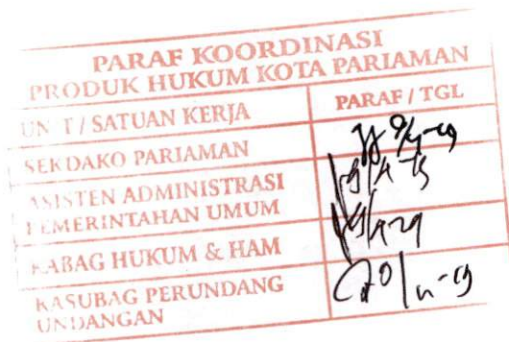 PARAF KOORDINASI
PRODUK HUKUM KOTA PARIAMAN
UNIT / SATUAN KERJA
PARAF / TGL
SEKDAKO PARIAMAN
ASISTEN ADMINISTRASI
PEMERINTAHAN UMUM
KABAG HUKUM & HAM
KASUBAG PERUNDANG
UNDANGAN